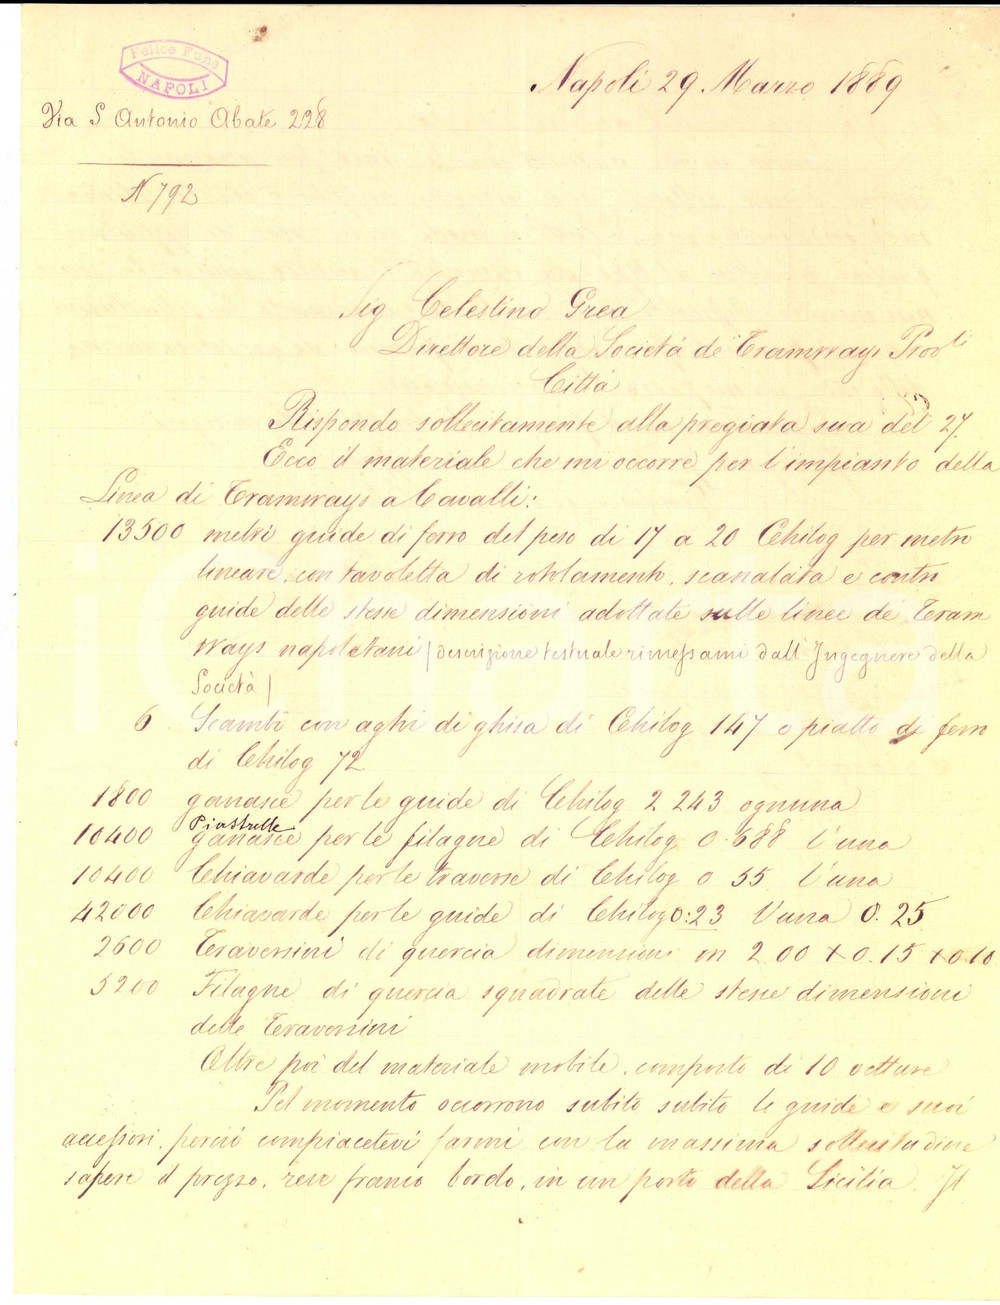 Felice Fune
NAPOLI
Via S Antonio Abate 228
N 792
Napoli 29. Marzo 1889
Sig Celestino Grea
Direttore della Società de Tramways Prov li
Città
Rispondo sollecitamente alla pregiata sua del 27.
Ecco il materiale che mi occorre per l'impianto della
Linea di Tramways a Cavalli:
13500 metri guide di ferro del peso di 17 a 20 Chilog per metro
lineare, con tavoletta di rotolamento, scanalata e contro
guide delle stesse dimensioni adottate sulle linee de' Tram
ways napoletani / descrizione testuale rimessami dall' Ingegnere della
Società /
6 Scambi con aghi di ghisa di Chilog 147 e piatto di ferro
di Chilog 72
1800 ganasce per le guide di Chilog 2 243 ognuna
Piastrelle
10400 ganasce per le filagne di Chilog 0.688 l'una
10400 Chiavarde per le traverse di Chilog 0 55 l'una
42000 Chiavarde per le guide di Chilog 0:23 l'una 0.25
2600 Traversini di quercia dimensioni m 2 00 x 0.15 x 0 10
5200 Filagne di quercia squadrate delle stesse dimensioni
delle Traversini
Oltre poi del materiale mobile, composto di 10 vetture
Pel momento occorrono subito subito le guide e suoi
accessori, perciò compiacetevi farmi con la massima sollecitudine
sapere il prezzo, rese franco bordo, in un porto della Sicilia. Il